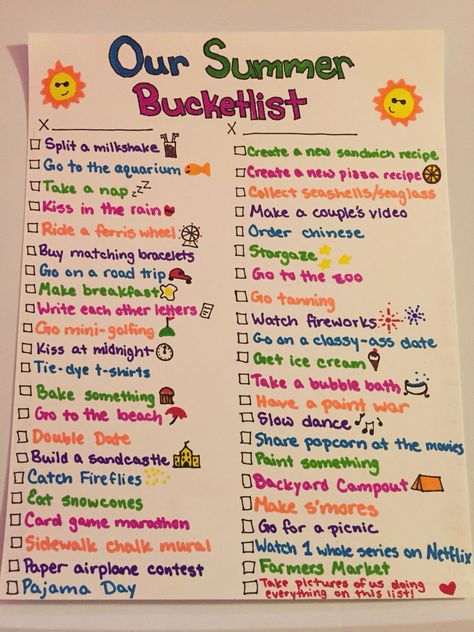 Our Summer
Bucketlist
X
X
Split a milkshake
Go to the aquarium
Take a nap zzz
Kiss in the rain
Ride a ferris wheel
Buy matching bracelets
Go on a road trip
Make breakfast
Write each other letters
Go mini-golfing
Kiss at midnight
Tie-dye t-shirts
Bake something
Go to the beach
Double Date
Build a sandcastle
Catch Fireflies
Eat snowcones
Card game marathon
Sidewalk chalk mural
Paper airplane contest
Pajama Day
Create a new sandwich recipe
Create a new pizza recipe
Collect seashells/seaglass
Make a couple's video
Order chinese
Stargaze
Go to the zoo
Go tanning
Watch fireworks
Go on a classy-ass date
Get ice cream
Take a bubble bath
Have a paint war
Slow dance
Share popcorn at the movies
Paint something
Backyard Campout
Make s'mores
Go for a picnic
Watch 1 whole series on Netflix
Farmers Market
Take pictures of us doing
everything on this list!